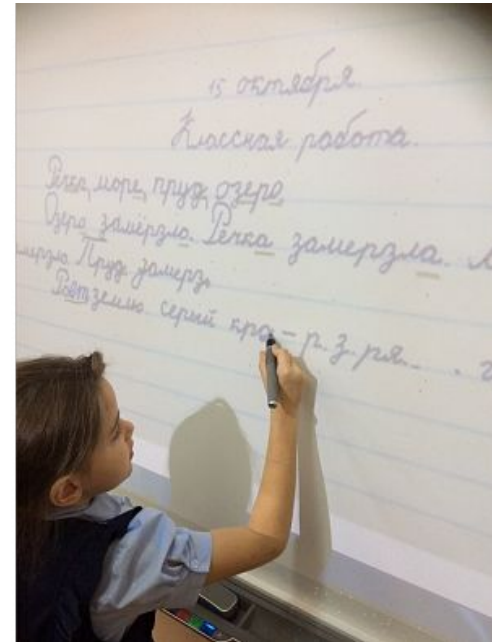 15 октября.
Классная работа.
Речка, море, пруд, озеро
Озеро замёрзло. Речка замерзла. М
мерзло. Пруд замерз.
Роет землю серый кро - р. з. ря. . .